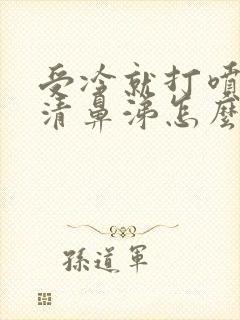 受冷就打噴
清鼻涕怎麼
孫道軍